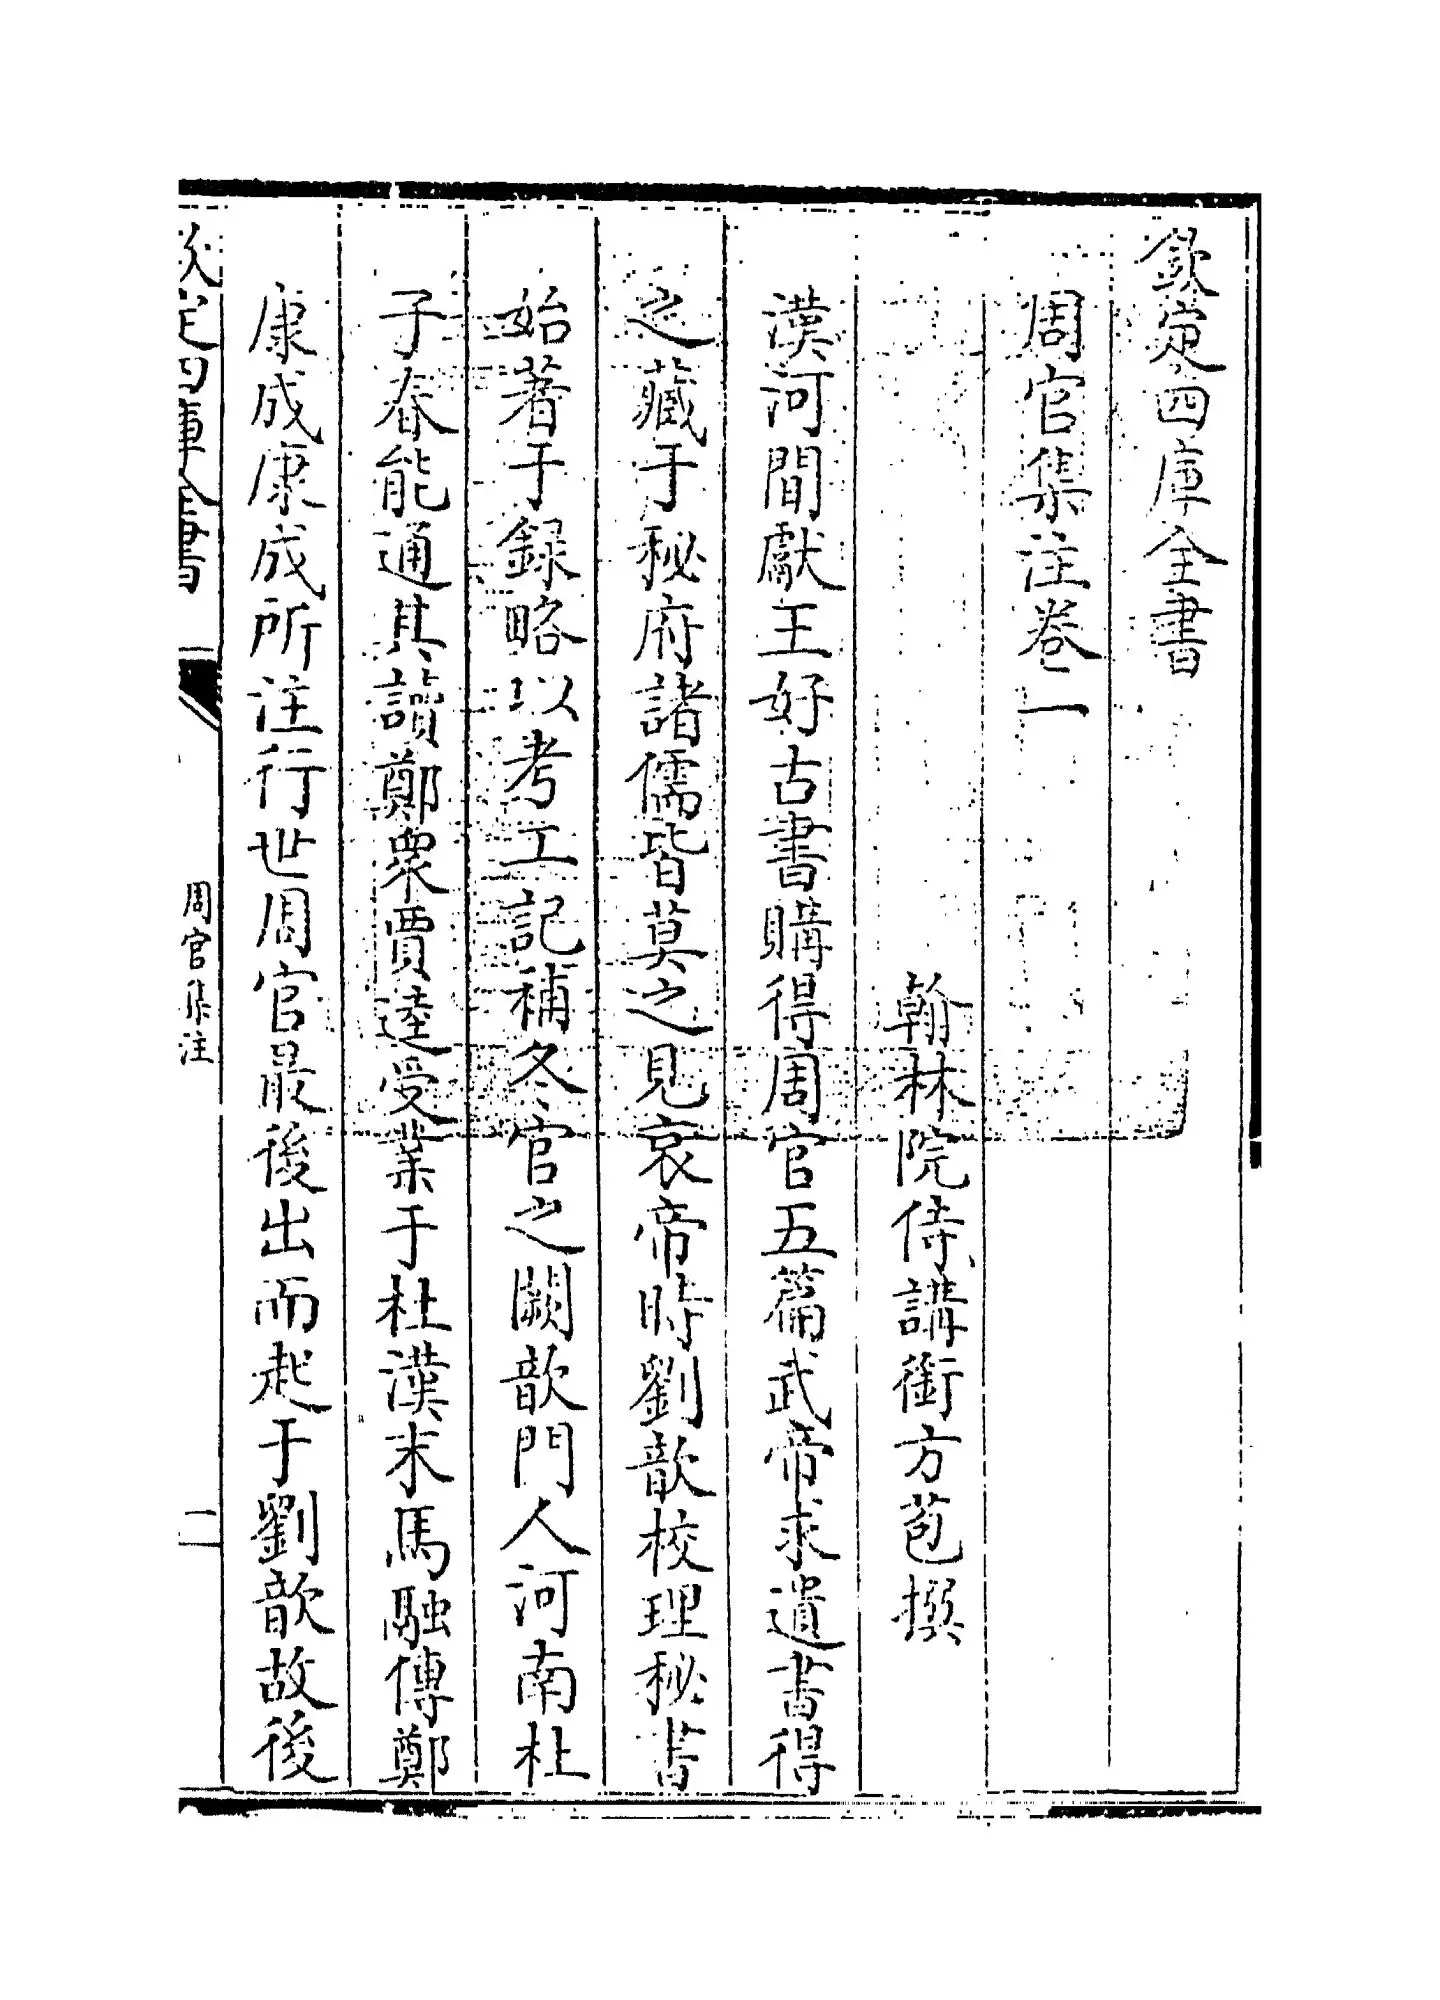 欽定四庫全書
周官集注卷一
翰林院侍講銜方苞撰
漢河間獻王好古書購得周官五篇武帝求遺書得
之藏于秘府諸儒皆莫之見哀帝時劉歆校理秘書
始著于録略以考工記補冬官之闕歆門人河南杜
子春能通其讀鄭衆賈逵受業于杜漢末馬融傳鄭
康成康成所注行世周官最後出而起于劉歆故後
欽定四庫全書
周官集注
二